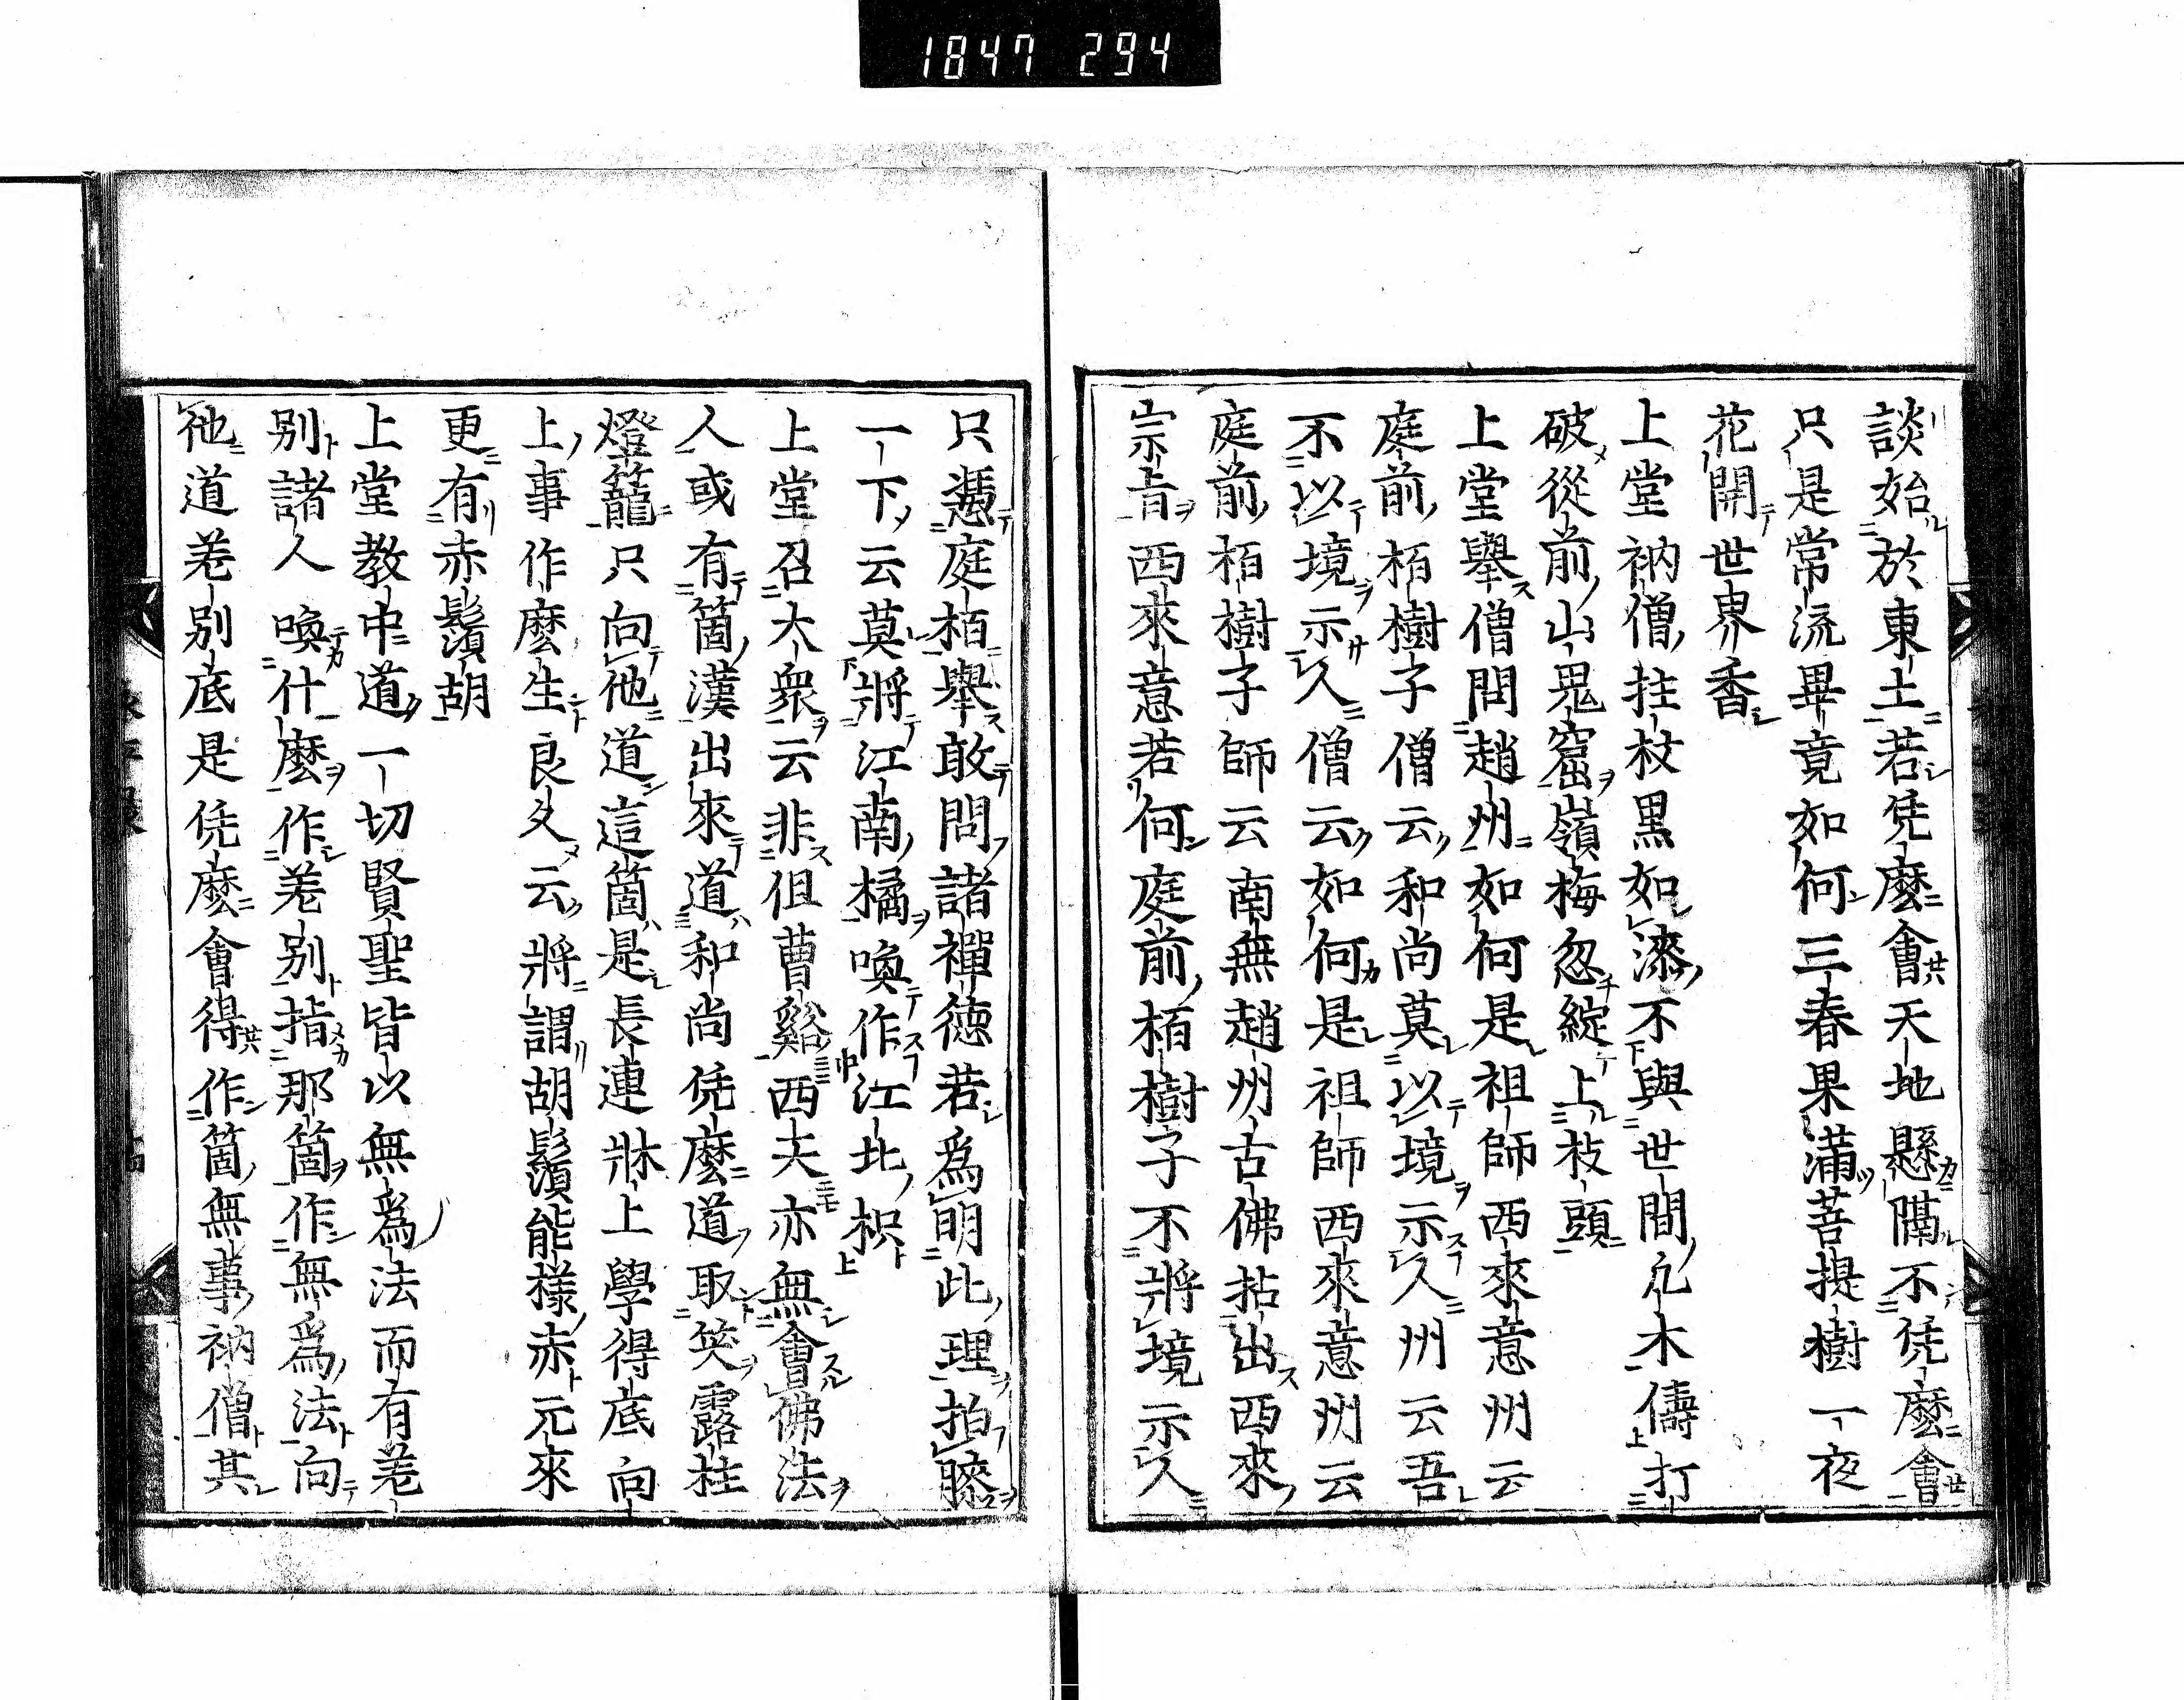 1847 294
談始於東土若恁麼會天地懸隔不恁麼會
只是常流畢竟如何三春果滿菩提樹一夜
花開世界香
上堂衲僧拄杖黒如漆不與世間凡木儔打
破從前山鬼窟嶺梅忽綻上枝頭
上堂舉僧問趙州如何是祖師西來意州云
庭前栢樹子僧云和尚莫以境示人州云吾
不以境示人僧云如何是祖師西來意州云
庭前栢樹子師云南無趙州古佛拈出西來
宗旨西來意若何庭前栢樹子不將境示人
只憑庭栢舉敢問諸禪德若爲明此理拍膝
一下云莫將江南橘喚作江北枳
上堂召大衆云非但曹谿西天亦無會佛法
人或有箇漢出來道和尚恁麼道取笑露柱
燈籠只向他道這箇是長連牀上學得底向
上事作麼生良久云將謂胡鬚能樣赤元來
更有赤鬚胡
上堂教中道一切賢聖皆以無爲法而有差
別諸人喚什麼作差別指那箇作無爲法向
他道差別底是恁麼會得作箇無事衲僧其